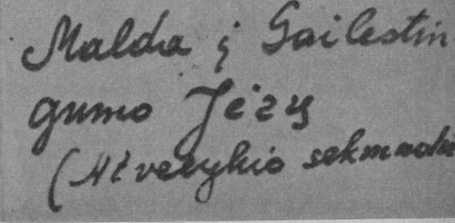 Malda į Gailestin
gumo Jėzų
(Atvelykio sekmadi